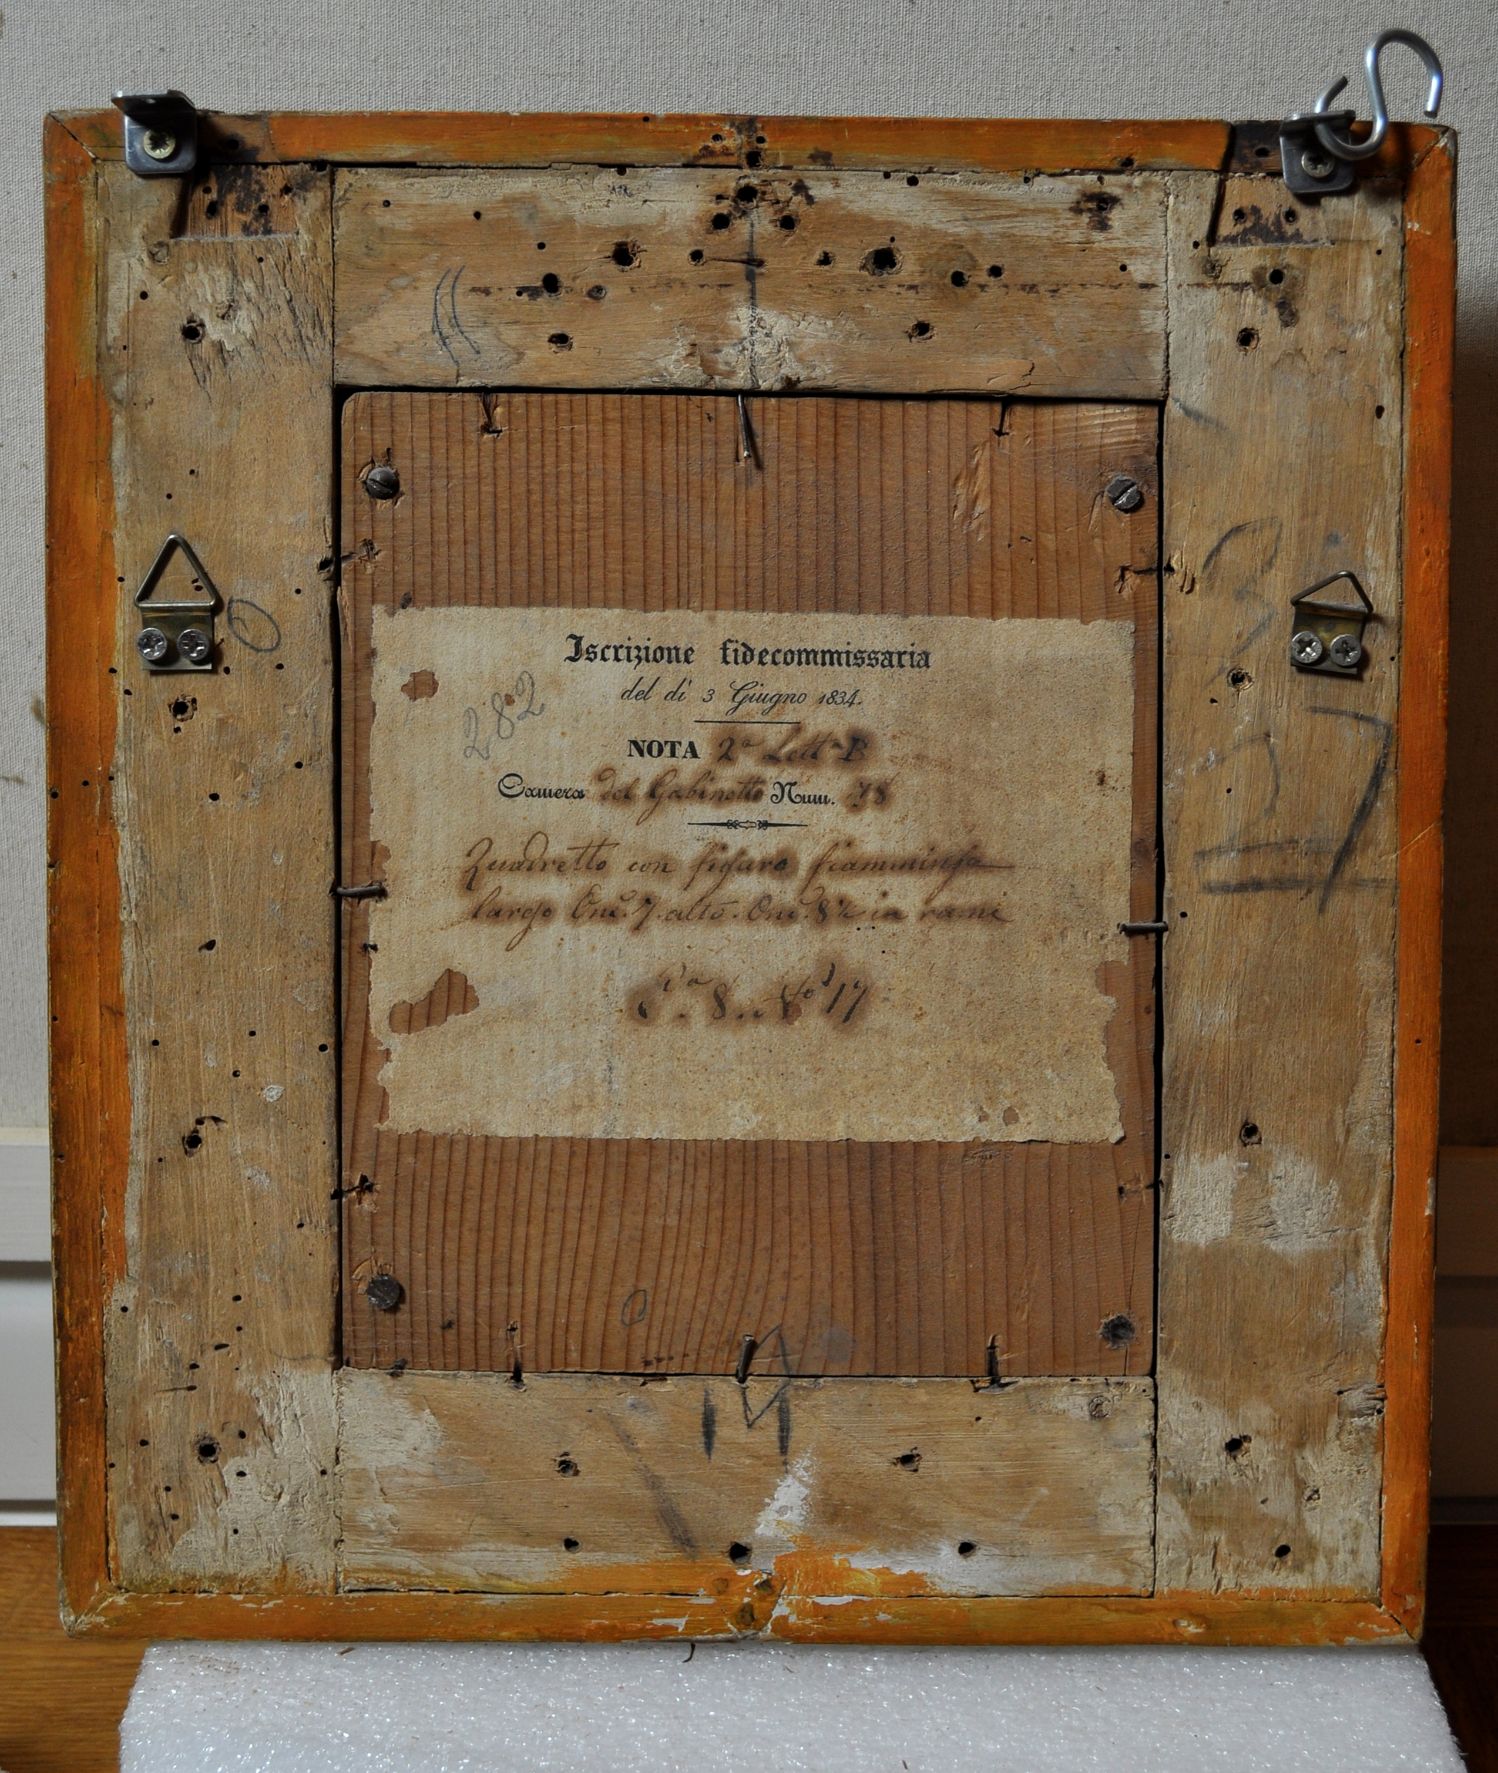 Iscrizione fidecommissaria
del dì 3 Giugno 1834.
282
NOTA 2ª Lett. B
Camera del Gabinetto Num. 78
Quadretto con figura fiamminga
largo Onc. 7. alto. Onc. 8½ in rame
8.. 17
37